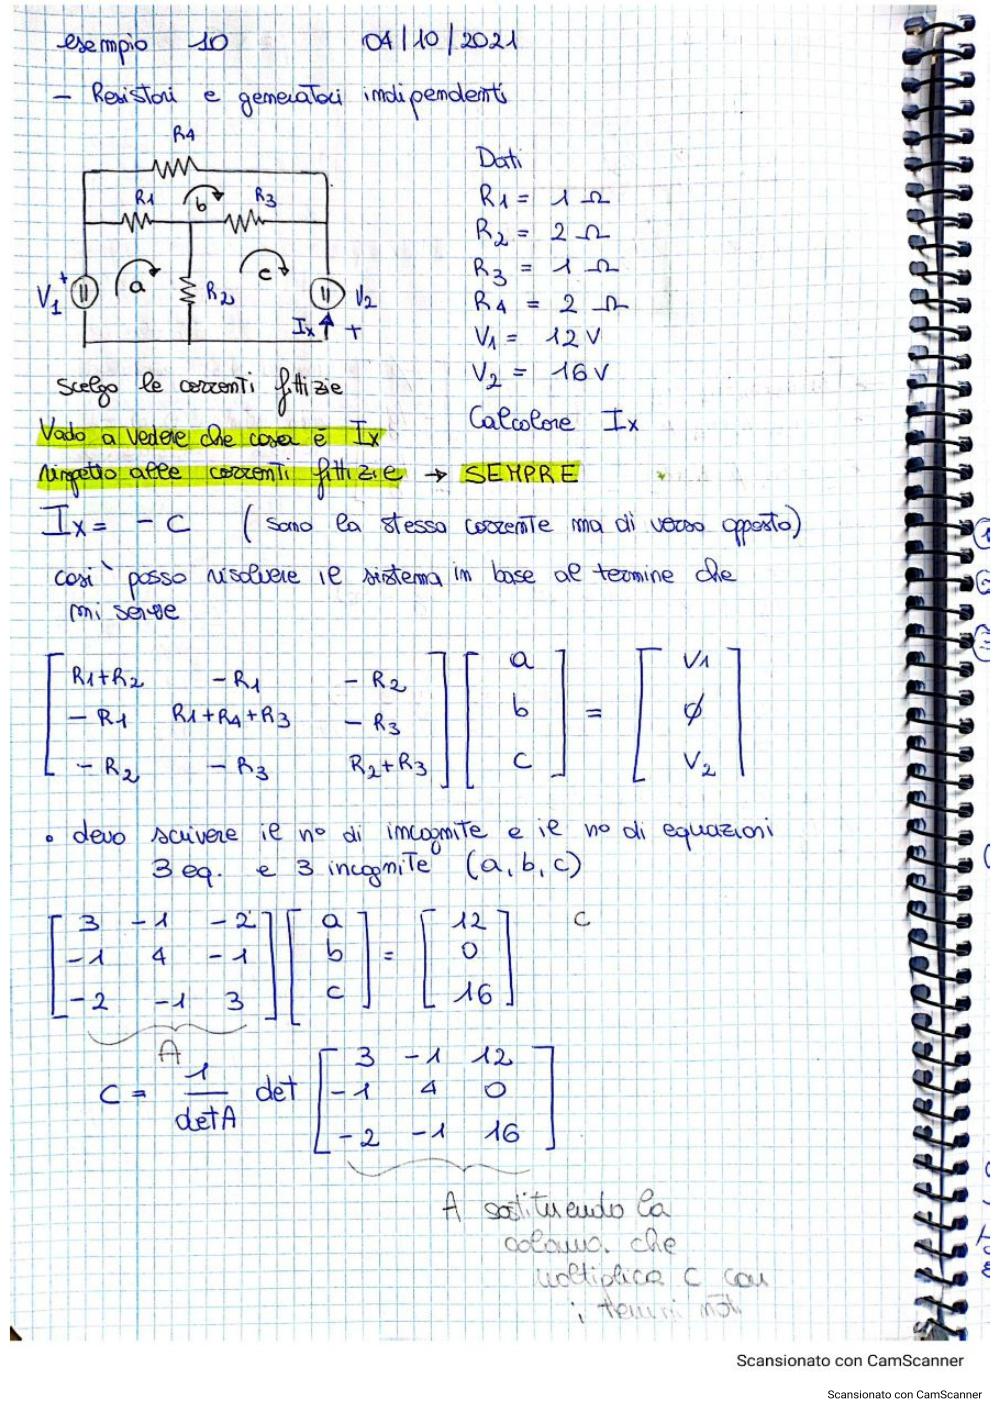 esempio 10 04/10/2021
- Resistori e generatori indipendenti
R4
R1 b R3
V1 + a R2 c V2
Ix +
Dati
R1 = 1 Ω
R2 = 2 Ω
R3 = 1 Ω
R4 = 2 Ω
V1 = 12 V
V2 = 16 V
Calcolare Ix
scelgo le correnti fittizie
Vado a vedere che cosa è Ix
rispetto alle correnti fittizie → SEMPRE
Ix = - c (sono la stessa corrente ma di verso opposto)
così posso risolvere il sistema in base al termine che
mi serve
[ R1+R2 -R1 -R2 ] [ a ] [ V1 ]
[ -R1 R1+R4+R3 -R3 ] [ b ] = [ ∅ ]
[ -R2 -R3 R2+R3 ] [ c ] [ V2 ]
• devo scrivere il n° di incognite e il n° di equazioni
3 eq. e 3 incognite (a, b, c)
[ 3 -1 -2 ] [ a ] [ 12 ] c
[ -1 4 -1 ] [ b ] = [ 0 ]
[ -2 -1 3 ] [ c ] [ 16 ]
A
c = 1/detA det [ 3 -1 12 ]
[ -1 4 0 ]
[ -2 -1 16 ]
A sostituendo la
colonna che
moltiplica c con
i termini noti
Scansionato con CamScanner
Scansionato con CamScanner